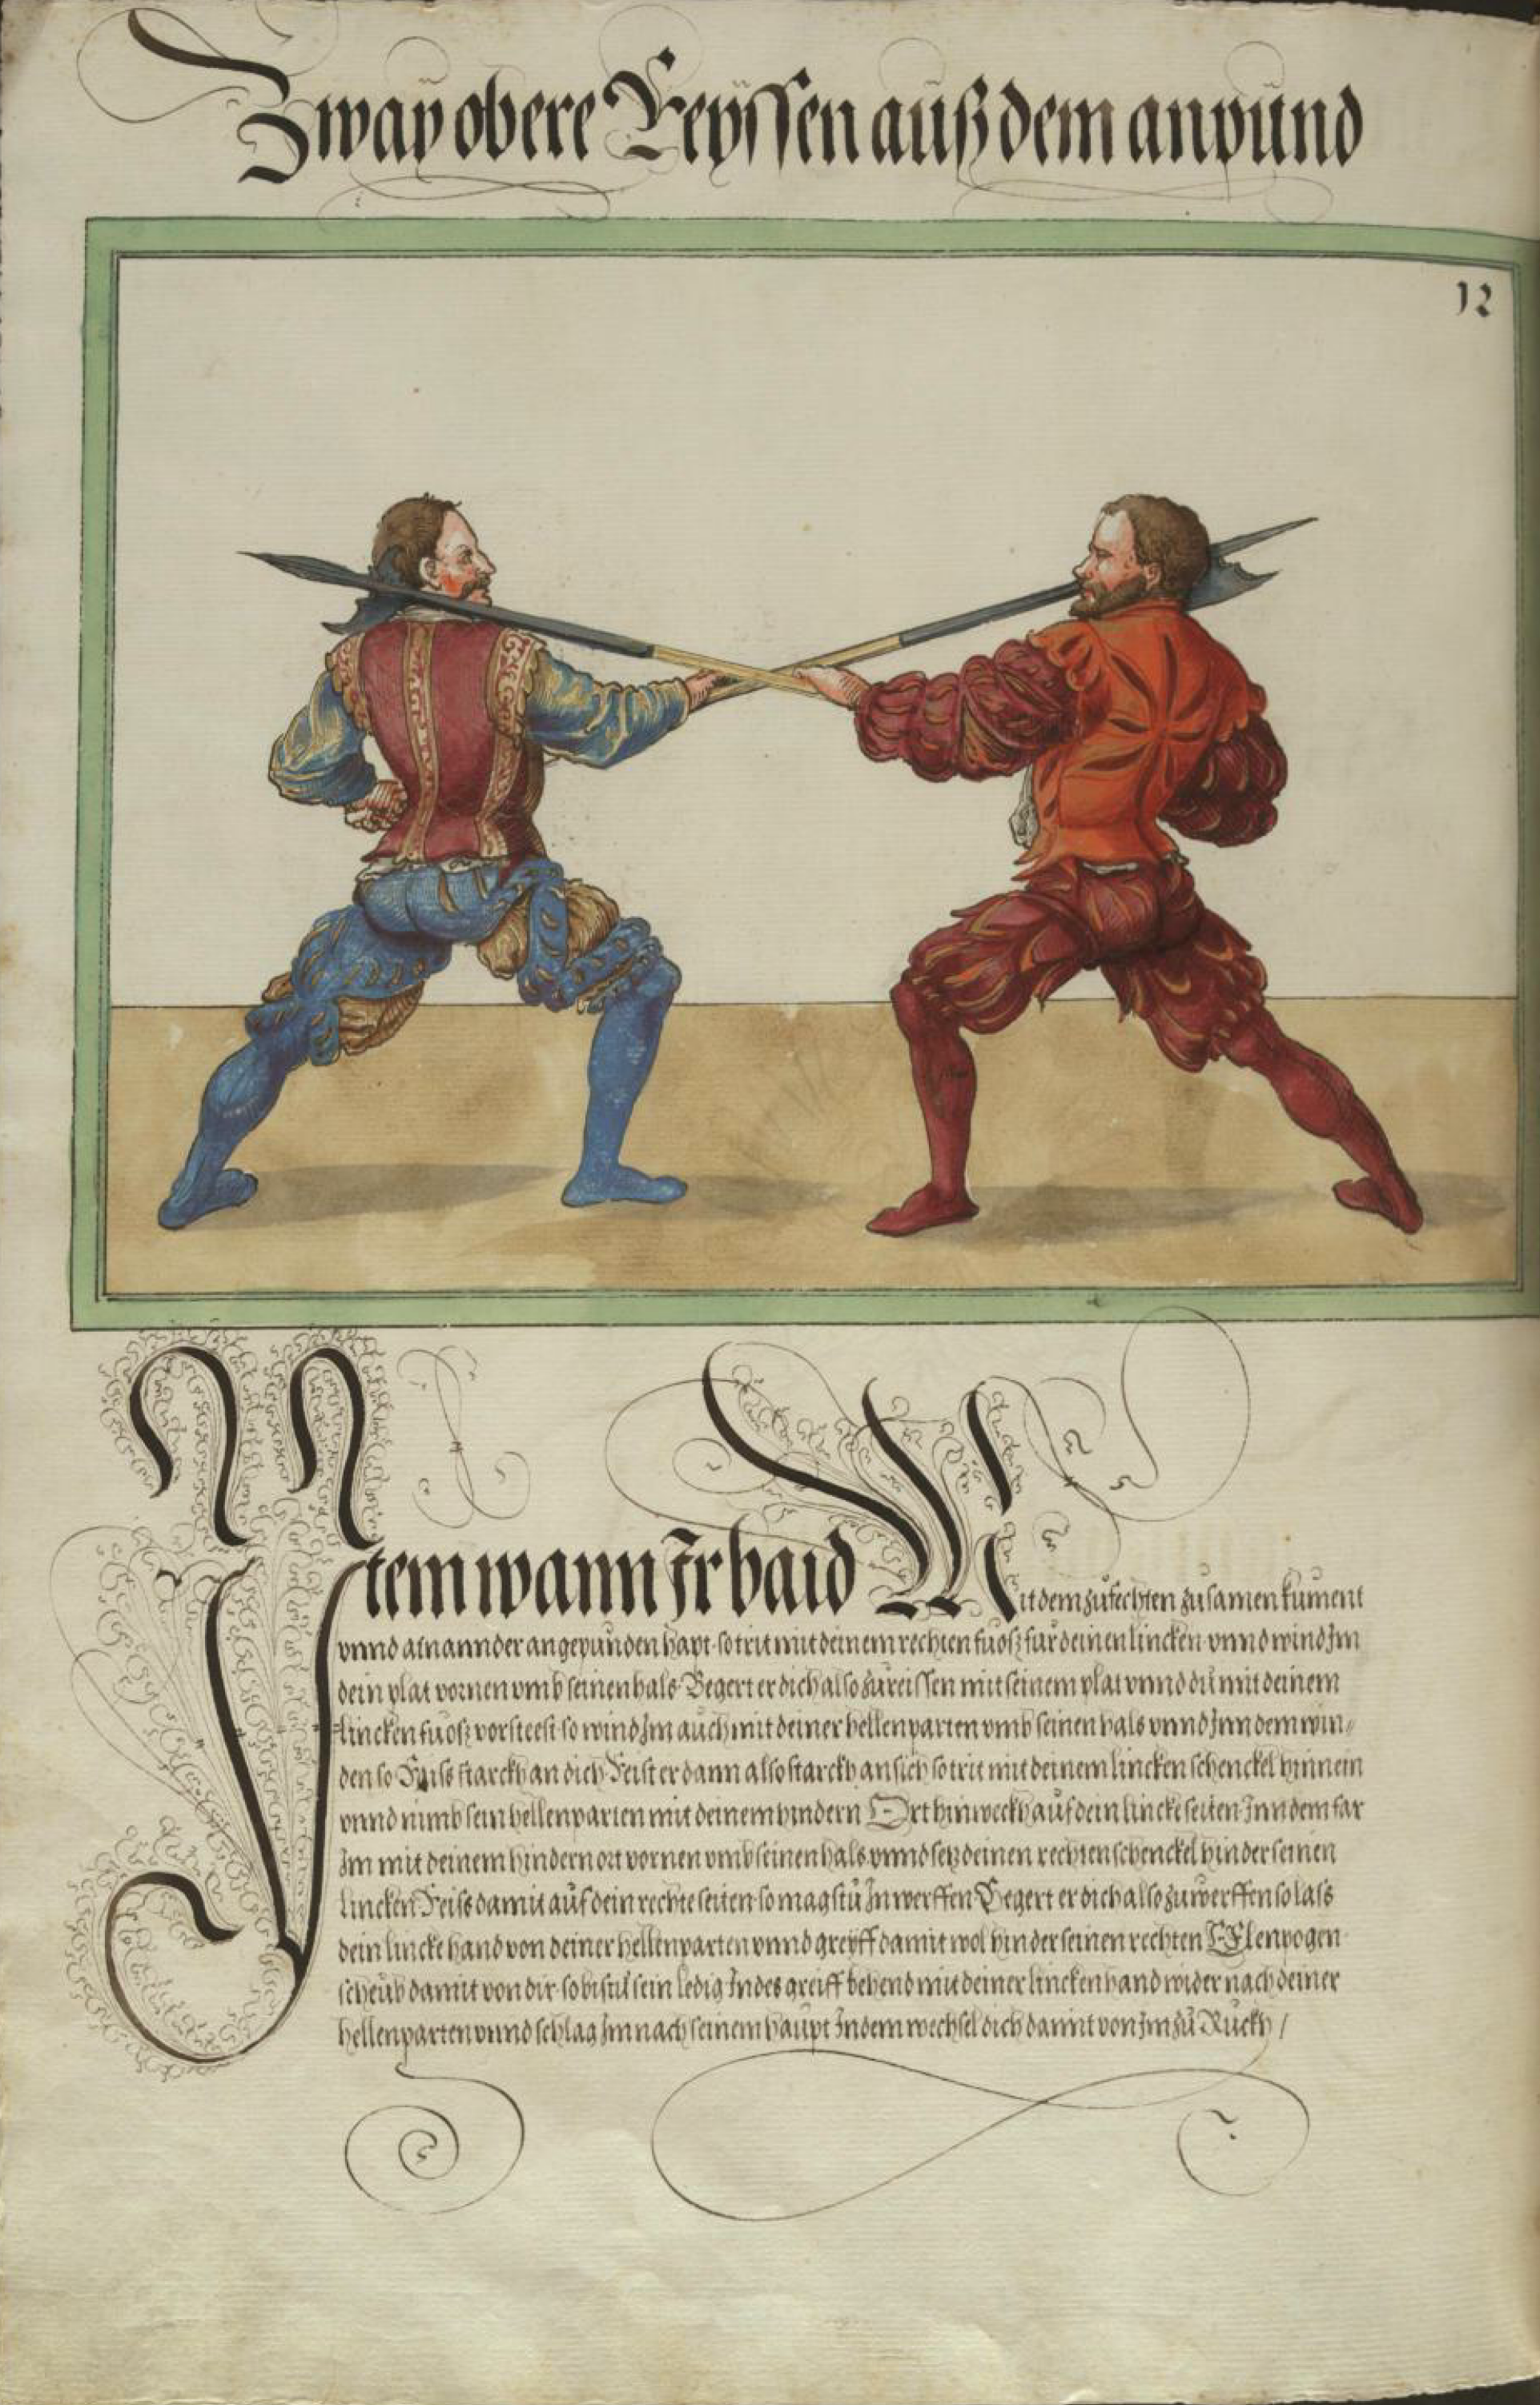 Zway obere Reyssen auß dem anpund
12
Item wann Ir baid Mit dem zufechten zusamen kument
vnnd ainannder angepunden hapt so trit mit deinem rechten fuosz fur deinen lincken vnnd wind Im
dein plat vornen vmb seinen hals Begert er dich also zureissen mit seinem plat vnnd du mit deinem
lincken fuosz vorsteest so wind Im auch mit deiner hellenparten vmb seinen hals vnnd Inn dem win⸗
den so Reiss starckh an dich Reist er dann also starckh an sich so trit mit deinem lincken schenckel hinnein
vnnd nimb sein hellenparten mit deinem hindern Ort hinweckh auf dein lincke seiten Inn dem far
Im mit deinem hindern ort vornen vmb seinen hals vnnd setz deinen rechten schenckel hinder seinen
lincken Reiss damit auf dein rechte seiten so magstu In werffen Begert er dich also zuwerffen so lass
dein lincke hand von deiner hellenparten vnnd greyff damit wol hinder seinen rechten Elenpogen
scheub damit von dir so bistu sein ledig Indes greiff behend mit deiner lincken hand wider nach deiner
hellenparten vnnd schlag Im nach seinem haupt Indem wechsel dich damit von Im zu Ruckh /